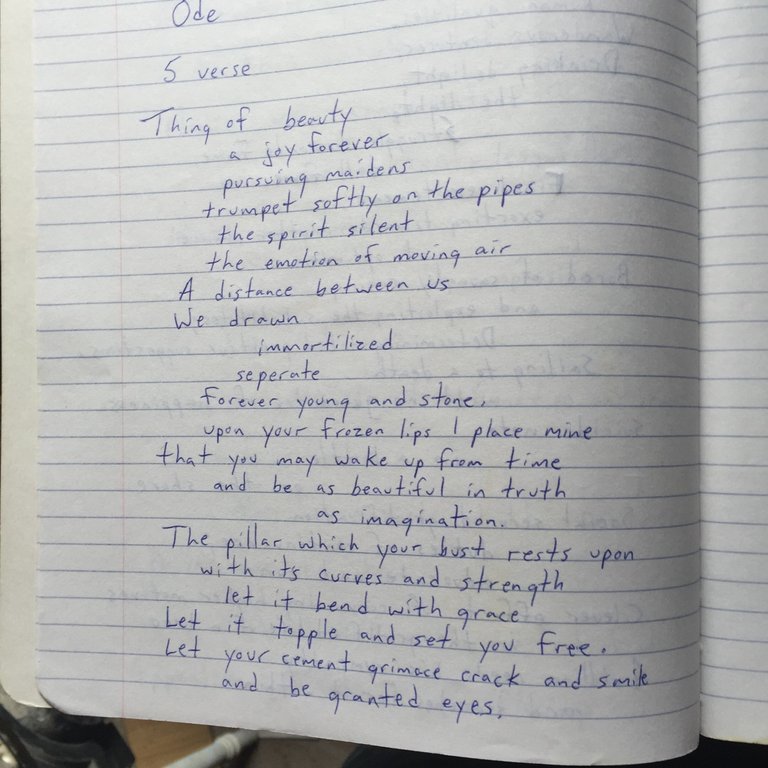 Ode
5 verse
Thing of beauty
a joy forever
pursuing maidens
trumpet softly on the pipes
the spirit silent
the emotion of moving air
A distance between us
We drawn
immortilized
seperate
forever young and stone.
upon your frozen lips I place mine
that you may wake up from time
and be as beautiful in truth
as imagination.
The pillar which your bust rests upon
with its curves and strength
let it bend with grace
Let it topple and set you free.
Let your cement grimace crack and smile
and be granted eyes.